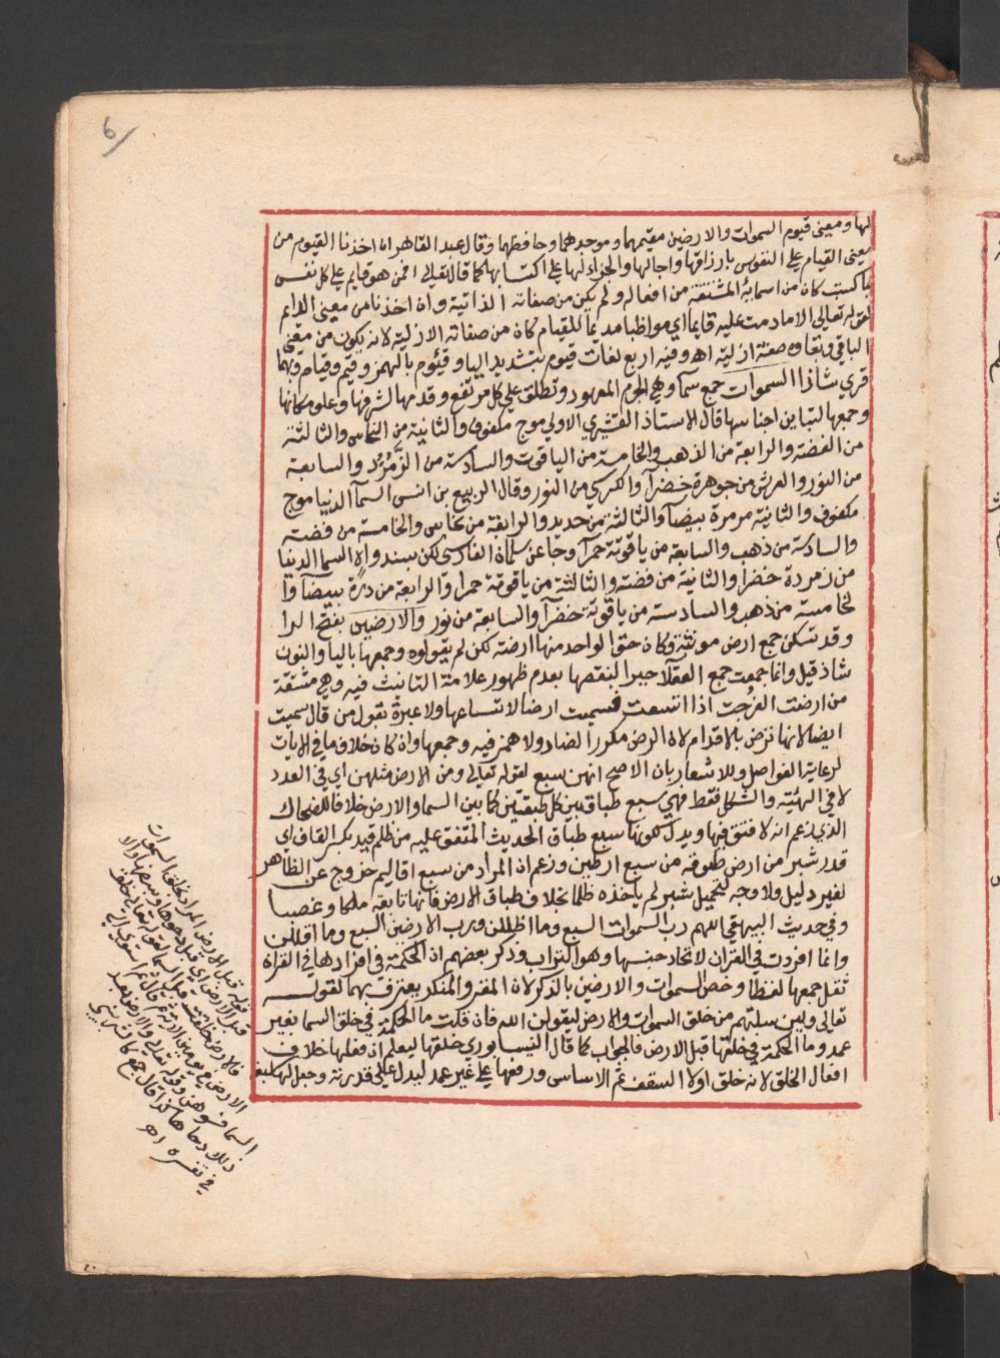 6
لها ومعنى قيوم السموات والارضين مقيمهما وموجدهما وحافظهما وقال عبد القاهر ان اخذنا القيوم من
معنى القيام على النفوس بارزاقها واجالها والجزاء لها على اكتسابها كما قال تعالى افمن هو قايم على كل نفس
بما كسبت كان من اسمائه المشتقة من افعاله ولم يكن من صفاته الذاتية وان اخذنا من معنى الدايم
لقوله تعالى الا مادمت عليه قايما اي مواظبا مديما للقيام كان من صفاته الازلية لانه يكون من معنى
الباقي وبقاوه صفة ازلية اهـ وفيه اربع لغات قيوم بتشديد اليا وقيئوم بالهمز وقيم وقيام وبهما
قري شاذا السموات جمع سما وهي الجرم المعهود وتطلق على كل مرتفع وقدمها لشرفها وعلو مكانها
وجمعها لتباين اجناسها قال الاستاذ القشيري الاولى موج مكفوف والثانية من النحاس والثالثة
من الفضة والرابعة من الذهب والخامسة من الياقوت والسادسة من الزمرد والسابعة
من النور والعرش من جوهرة خضرآ والكرسي من النور وقال الربيع بن انس السمآ الدنيا موج
مكفوف والثانية مرمرة بيضآ والثالثة من حديد والرابعة من نحاس والخامسة من فضة
والسادسة من ذهب والسابعة من ياقوتة حمرآ وجا عن سلمان الفارسي لكن بسند واه السما الدنيا
من زمردة خضرا والثانية من فضة والثالثة من ياقوتة حمرا والرابعة من درة بيضآ وا
لخامسة من ذهب والسادسة من ياقوتة خضرآ والسابعة من نور والارضين بفتح الرا
وقد تسكن جمع ارض مونثة وكان حق الواحد منها ارضة لكن لم يقولوه وجمعها باليا والنون
شاذ قيل وانما جمعت جمع العقلا جبرا لنقصها بعدم ظهور علامة التانيث فيه وهي مشتقة
من ارضت القرحت اذا اتسعت فسميت ارضا لاتساعها ولا عبرة بقول من قال سميت
ايضا لانها ترض بالاقدام لان الرض مكرر الضاد ولا همز فيه وجمعها وان كان خلاف ما في الايات
لرعاية الفواصل وللاشعار بان الاصح انهن سبع لقوله تعالى ومن الارض مثلهن اي في العدد
لا في الهيئة والشكل فقط فهي سبع طباق بين كل طبقتين كما بين السما والارض خلافا للضحاك
الذي زعم انه لا فتق فيها ويدل لكونها سبع طباق الحديث المتفق عليه من ظلم قيد بكسر القاف اي
قدر شبر من ارض طوقه من سبع ارضين وزعم ان المراد من سبع اقاليم خروج عن الظاهر
لغير دليل ولا وجه لتحميل شبر لم ياخذه ظلما بخلاف طباق الارض فانها تابعة ملكا وغصبا
وفي حديث البيهقي اللهم رب السموات السبع وما اظللن ورب الارضين السبع وما اقللن
وانما افردت في القران لاتحاد جنسها وهو التراب وذكر بعضهم ان الحكمة في افرادها في القران
ثقل جمعها لفظا وخص السموات والارضين بالذكر لان المقر والمنكر يعترف بهما كقوله
تعالى ولين سلتهم من خلق السموات والارض ليقولن الله فان قلت ما الحكمة في خلق السما بغير
عمد وما الحكمة في خلقها قبل الارض فالجواب كما قال النيسابوري خلقها ليعلم ان فعلها خلاف
افعال الخلق لانه خلق اولا السقف ثم الاساس ورفعها على غير عمد ليدل على قدرته وجعل لها سبع
قوله قبل الارض المراد بخلق السموات
قبل الارض اي قبل دحوها وبسطها والا
فالارض خلقت قبل السما لقوله تعالى خلق
الارض في يومين الاية ثم قال ثم استوى الى
السما فسوهن وقوله تعالى والارض بعد
ذلك دحاها كذا قال جمع
في تفسيره اهـ